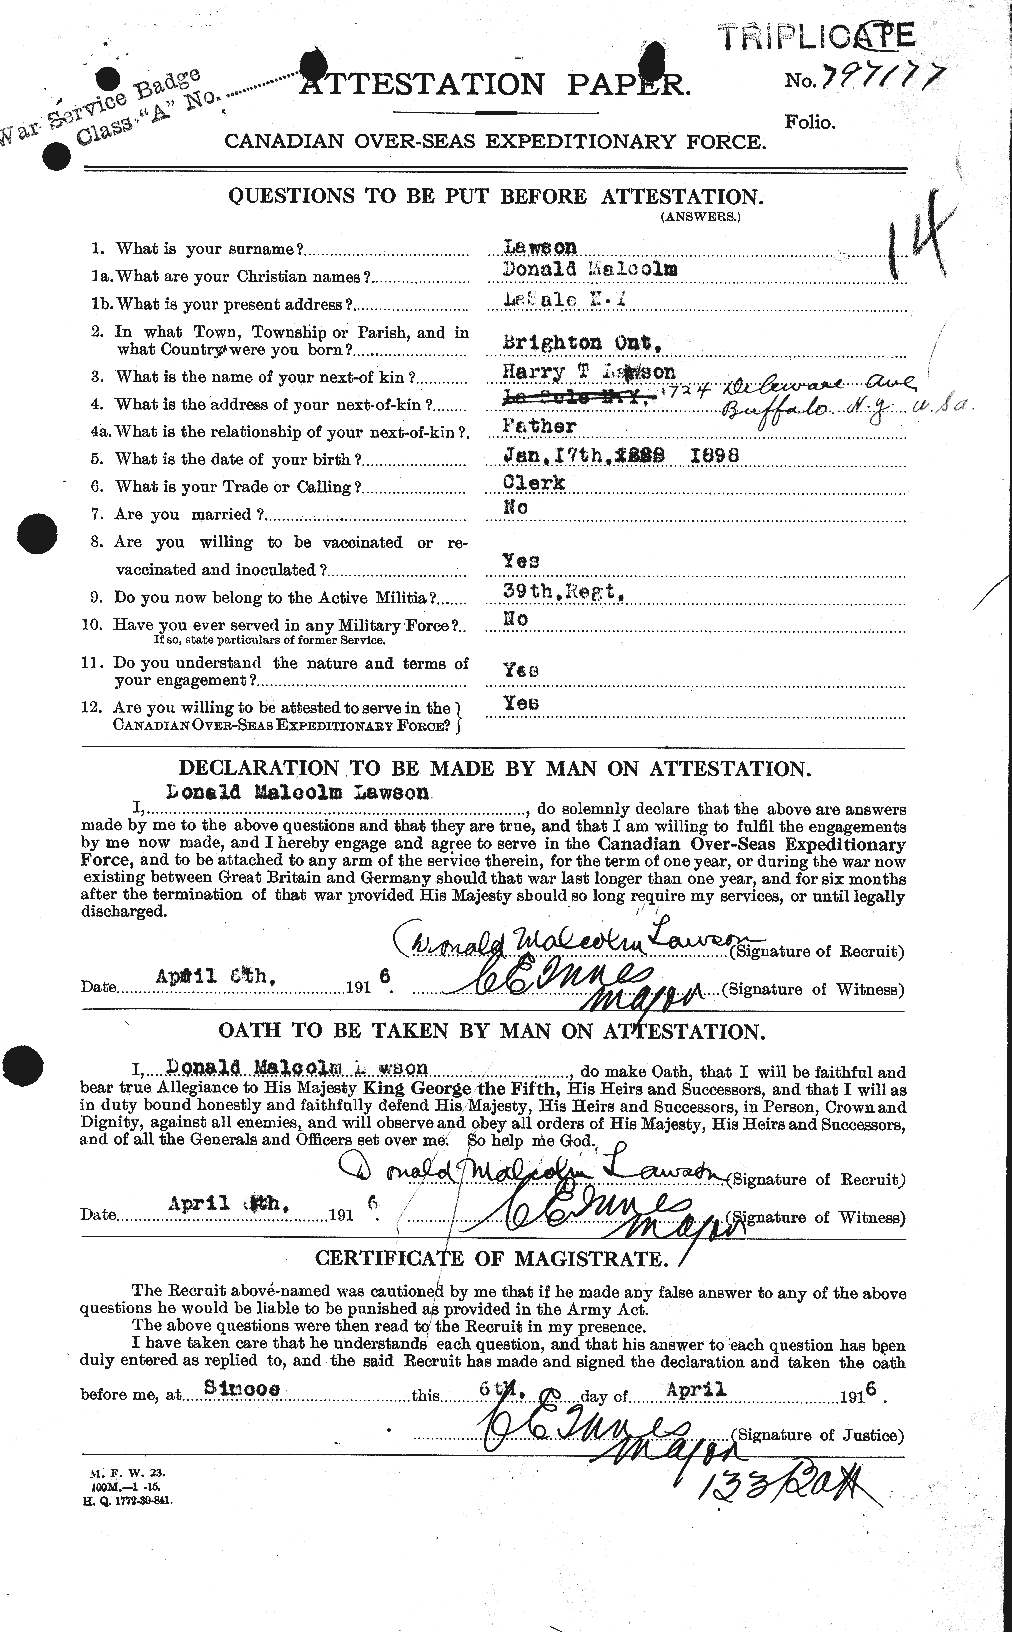 TRIPLICATE
War Service Badge
Class "A" No.
ATTESTATION PAPER.
No. 797177
Folio.
CANADIAN OVER-SEAS EXPEDITIONARY FORCE.
14
QUESTIONS TO BE PUT BEFORE ATTESTATION.
(ANSWERS.)
1. What is your surname? Lawson
1a. What are your Christian names? Donald Malcolm
1b. What is your present address? LaSale N.Y
2. In what Town, Township or Parish, and in
what Country were you born? Brighton Ont,
3. What is the name of your next-of kin? Harry T Lawson
4. What is the address of your next-of-kin? La Sale N.Y. 1724 Deleware Ave,
Buffalo N.Y U.S.A.
4a. What is the relationship of your next-of-kin? Father
5. What is the date of your birth? Jan, 17th, 1888 1898
6. What is your Trade or Calling? Clerk
7. Are you married? No
8. Are you willing to be vaccinated or re-
vaccinated and inoculated? Yes
9. Do you now belong to the Active Militia? 39th, Regt,
10. Have you ever served in any Military Force? No
If so, state particulars of former Service.
11. Do you understand the nature and terms of
your engagement? Yes
12. Are you willing to be attested to serve in the } Yes
CANADIAN OVER-SEAS EXPEDITIONARY FORCE? }
DECLARATION TO BE MADE BY MAN ON ATTESTATION.
Donald Malcolm Lawson
I, , do solemnly declare that the above are answers
made by me to the above questions and that they are true, and that I am willing to fulfil the engagements
by me now made, and I hereby engage and agree to serve in the Canadian Over-Seas Expeditionary
Force, and to be attached to any arm of the service therein, for the term of one year, or during the war now
existing between Great Britain and Germany should that war last longer than one year, and for six months
after the termination of that war provided His Majesty should so long require my services, or until legally
discharged.
Donald Malcolm Lawson (Signature of Recruit)
Date April 6th, 1916. C E Innes Major (Signature of Witness)
OATH TO BE TAKEN BY MAN ON ATTESTATION.
I, Donald Malcolm L wson, do make Oath, that I will be faithful and
bear true Allegiance to His Majesty King George the Fifth, His Heirs and Successors, and that I will as
in duty bound honestly and faithfully defend His Majesty, His Heirs and Successors, in Person, Crown and
Dignity, against all enemies, and will observe and obey all orders of His Majesty, His Heirs and Successors,
and of all the Generals and Officers set over me. So help me God.
Donald Malcolm Lawson (Signature of Recruit)
Date April 6th, 1916. C E Innes Major (Signature of Witness)
CERTIFICATE OF MAGISTRATE.
The Recruit above-named was cautioned by me that if he made any false answer to any of the above
questions he would be liable to be punished as provided in the Army Act.
The above questions were then read to the Recruit in my presence.
I have taken care that he understands each question, and that his answer to each question has been
duly entered as replied to, and the said Recruit has made and signed the declaration and taken the oath
before me, at Simcoe this 6th, day of April 1916.
C E Innes Major (Signature of Justice)
133 Batt
M. F. W. 23.
400M.—1 -15.
H. Q. 1772-39-841.